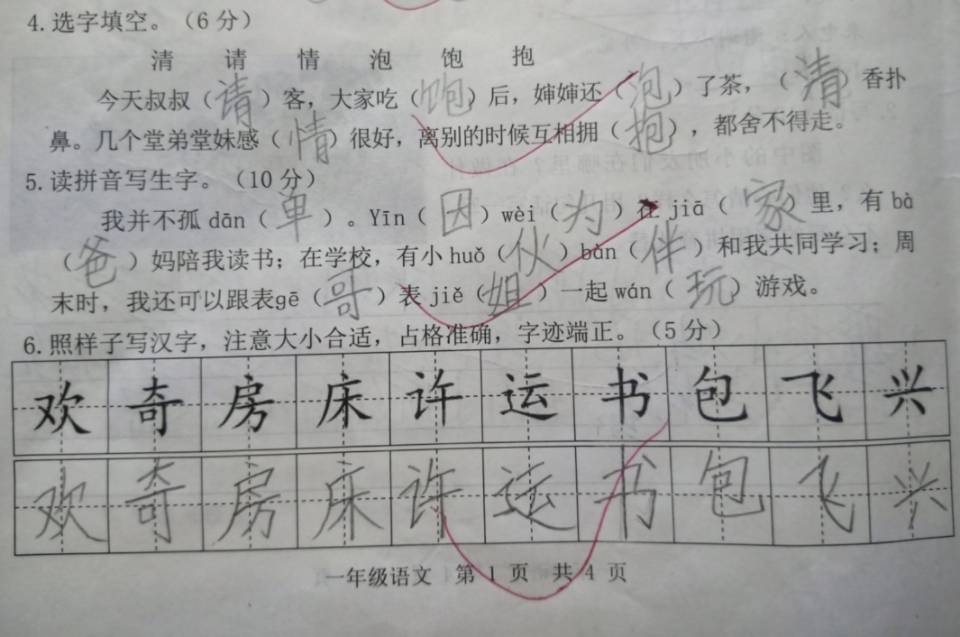 4.选字填空。（6分）
清 请 情 泡 饱 抱
今天叔叔（请）客，大家吃（饱）后，婶婶还（泡）了茶，（清）香扑
鼻。几个堂弟堂妹感（情）很好，离别的时候互相拥（抱），都舍不得走。
5.读拼音写生字。（10分）
我并不孤dān（单）。Yīn（因）wèi（为）在jiā（家里，有bà
（爸）妈陪我读书；在学校，有小huǒ（伙）bàn（伴）和我共同学习；周
末时，我还可以跟表gē（哥）表jiě（姐）一起wán（玩）游戏。
6.照样子写汉字，注意大小合适，占格准确，字迹端正。（5分）
欢 奇 房 床 许 运 书 包 飞 兴
欢 奇 房 床 许 运 书 包 飞 兴
一年级语文 第 1 页 共 4 页